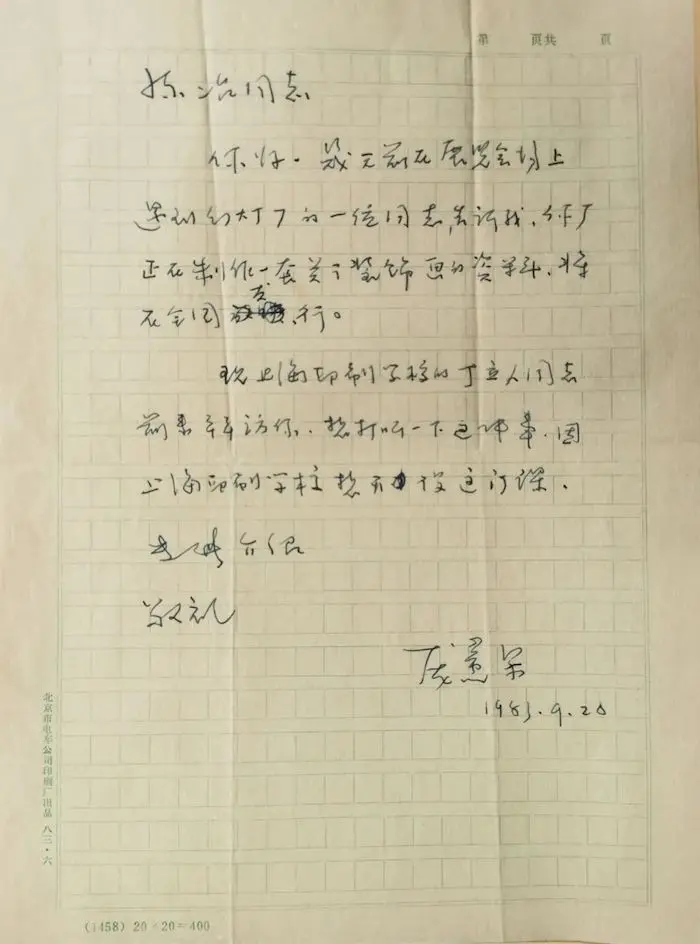 第 页共 页
冶同志
你好。几天前在展览会场上
遇到幻灯厂的一位同志,告诉我,你厂
正在制作一套关于装饰画的资料,将
在全国发行。
现上海印刷学校的丁立人同志
前来拜访你,想打听一下这件事,因
上海印刷学校想开设这门课。
介绍
敬礼
1983.9.20
北京市电车公司印刷厂出品 八三·六
(1458) 20×20=400